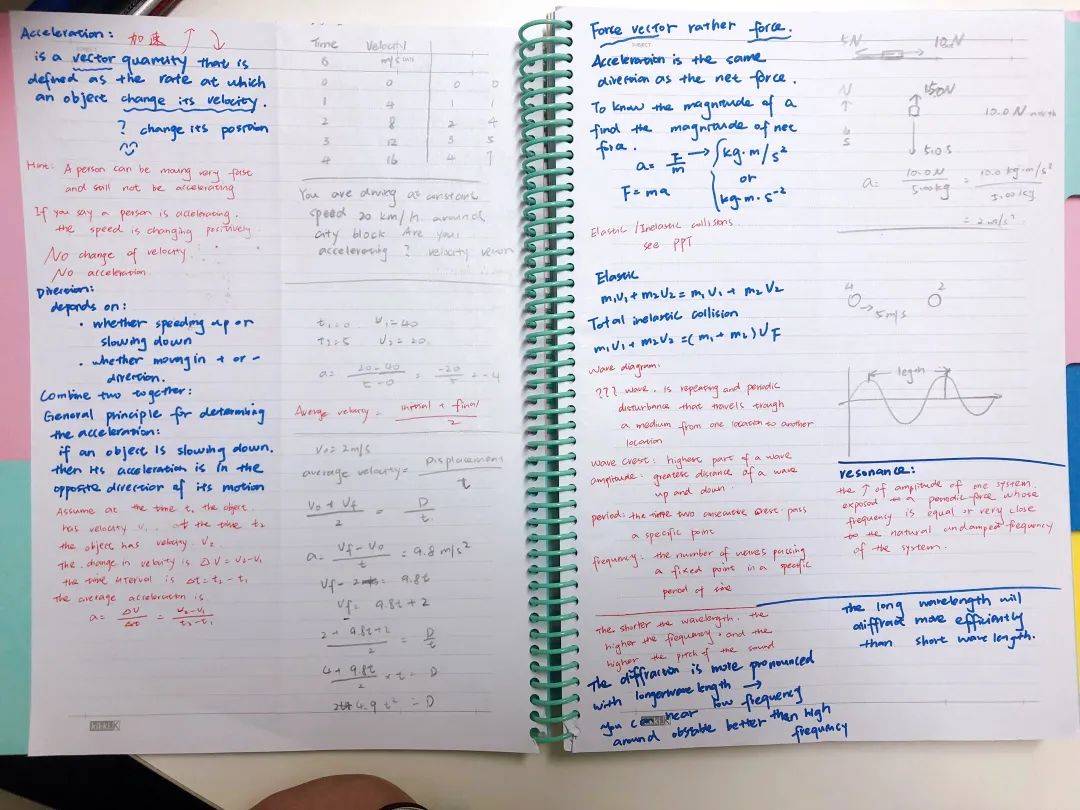 Acceleration: 加速 ↑ ↓
is a vector quantity that is
defined as the rate at which
an object change its velocity.
? change its position
Hint: A person can be moving very fast
and still not be accelerating
If you say a person is accelerating.
the speed is changing positively.
No change of velocity
No acceleration.
Direction:
depends on:
• whether speeding up or
slowing down
• whether moving in + or -
direction.
Combine two together:
General principle for determining
the acceleration:
if an object is slowing down.
then its acceleration is in the
opposite direction of its motion
Assume at the time t, the object
has velocity V₁. at the time t₂
the object has velocity V₂
The change in velocity is ΔV = V₂-V₁
the time interval is Δt = t₂-t₁
The average acceleration is
a = ΔV/Δt = V₂-V₁/t₂-t₁
Time Velocity
m/s
0 0 0 0
1 4 1 1
2 8 2 4
3 12 3 5
4 16 4 7
You are driving at constant
speed 20 km/h. around
city block Are you
accelerating ? velocity
t₁=0 V₁=40
t₂=5 V₂=20.
a= 20-40/5-0 = -20/5 = -4
Average velocity = initial + final/2
V₀=2m/s
average velocity = Displacement/t
V₀+Vf/2 = D/t
a= Vf-V₀/t = 9.8 m/s²
Vf-2 = 9.8t
Vf = 9.8t+2
2+9.8t+2/2 = D/t
4+9.8t/2 × t = D
4.9t² = D
KIKKI.K
Force vector rather force.
Acceleration is the same
direction as the net force.
To know the magnitude of a
find the magnitude of net
force.
a= F/m → kg·m/s²
or
F=ma kg·m·s⁻²
Elastic/Inelastic collisions
see PPT
5N 10.0N
N 15.0N
10.0 N north
S 5.0 S
a= 10.0N/5.00kg = 10.0 kg·m/s²/5.00kg
= 2 m/s²
Elastic
m₁V₁ + m₂V₂ = m₁V₁ + m₂V₂
Total inelastic collision
m₁V₁ + m₂V₂ = (m₁+m₂)VF
4 2
5m/s
Wave diagram:
??? wave. is repeating and periodic
disturbance that travels trough
a medium from one location to another
location
legth
Wave crest: highest part of a wave
amplitude: greatest distance of a wave
up and down.
period: the time two consecutive crest pass
a specific point
frequency: the number of waves passing
a fixed point in a specific
period of time
resonance:
the ↑ of amplitude of one system
exposed to a periodic force whose
frequency is equal or very close
to the natural undamped frequency
of the system.
The shorter the wavelength. the
higher the frequency. and the
higher the pitch of the sound
The diffraction is more pronounced
with longer wave length → low frequency
you can hear
around obstable better than high
frequency
The long wavelength will
diffract more efficiently
than short wave length.